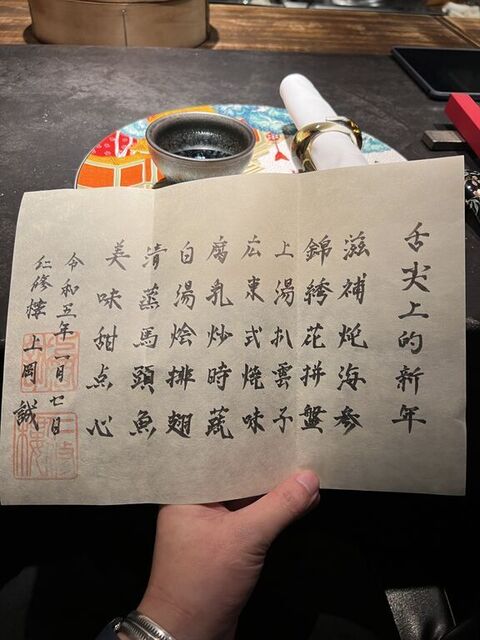 舌尖上的新年
滋補炖海参
錦綉花拼盤
上湯扒雲子
広東式焼味
腐乳炒時蔬
白湯烩排翅
清蒸馬頭魚
美味甜点心
令和五年一月七日
仁修樓 上岡 誠